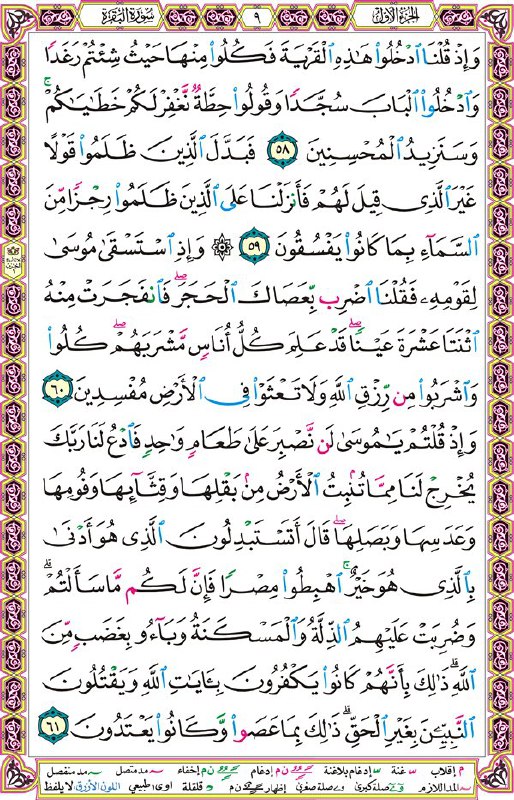 الجزء الأول
٩
سورة البقرة
وَإِذْ قُلْنَا ٱدْخُلُوا۟ هَٰذِهِ ٱلْقَرْيَةَ فَكُلُوا۟ مِنْهَا حَيْثُ شِئْتُمْ رَغَدًا
وَٱدْخُلُوا۟ ٱلْبَابَ سُجَّدًا وَقُولُوا۟ حِطَّةٌ نَّغْفِرْ لَكُمْ خَطَٰيَٰكُمْ ۚ
وَسَنَزِيدُ ٱلْمُحْسِنِينَ ٥٨ فَبَدَّلَ ٱلَّذِينَ ظَلَمُوا۟ قَوْلًا
غَيْرَ ٱلَّذِى قِيلَ لَهُمْ فَأَنزَلْنَا عَلَى ٱلَّذِينَ ظَلَمُوا۟ رِجْزًا مِّنَ
ٱلسَّمَآءِ بِمَا كَانُوا۟ يَفْسُقُونَ ٥٩ ۞ وَإِذِ ٱسْتَسْقَىٰ مُوسَىٰ
لِقَوْمِهِۦ فَقُلْنَا ٱضْرِب بِّعَصَاكَ ٱلْحَجَرَ ۖ فَٱنفَجَرَتْ مِنْهُ
ٱثْنَتَا عَشْرَةَ عَيْنًا ۖ قَدْ عَلِمَ كُلُّ أُنَاسٍ مَّشْرَبَهُمْ ۖ كُلُوا۟
وَٱشْرَبُوا۟ مِن رِّزْقِ ٱللَّهِ وَلَا تَعْثَوْا۟ فِى ٱلْأَرْضِ مُفْسِدِينَ ٦٠
وَإِذْ قُلْتُمْ يَٰمُوسَىٰ لَن نَّصْبِرَ عَلَىٰ طَعَامٍ وَٰحِدٍ فَٱدْعُ لَنَا رَبَّكَ
يُخْرِجْ لَنَا مِمَّا تُنۢبِتُ ٱلْأَرْضُ مِنۢ بَقْلِهَا وَقِثَّآئِهَا وَفُومِهَا
وَعَدَسِهَا وَبَصَلِهَا ۖ قَالَ أَتَسْتَبْدِلُونَ ٱلَّذِى هُوَ أَدْنَىٰ
بِٱلَّذِى هُوَ خَيْرٌ ۚ ٱهْبِطُوا۟ مِصْرًا فَإِنَّ لَكُم مَّا سَأَلْتُمْ ۗ
وَضُرِبَتْ عَلَيْهِمُ ٱلذِّلَّةُ وَٱلْمَسْكَنَةُ وَبَآءُو بِغَضَبٍ مِّنَ
ٱللَّهِ ۗ ذَٰلِكَ بِأَنَّهُمْ كَانُوا۟ يَكْفُرُونَ بِـَٔايَٰتِ ٱللَّهِ وَيَقْتُلُونَ
ٱلنَّبِيِّـۧنَ بِغَيْرِ ٱلْحَقِّ ۗ ذَٰلِكَ بِمَا عَصَوا۟ وَّكَانُوا۟ يَعْتَدُونَ ٦١
م إقلاب س غنة س إدغام بلاغنة ن م إدغام ن م إخفاء مد متصل مد منفصل
المد اللازم صلة كبرى صلة صغرى إظهار ن م قلقلة اوى: طبيعي اللون الأزرق لا يلفظ